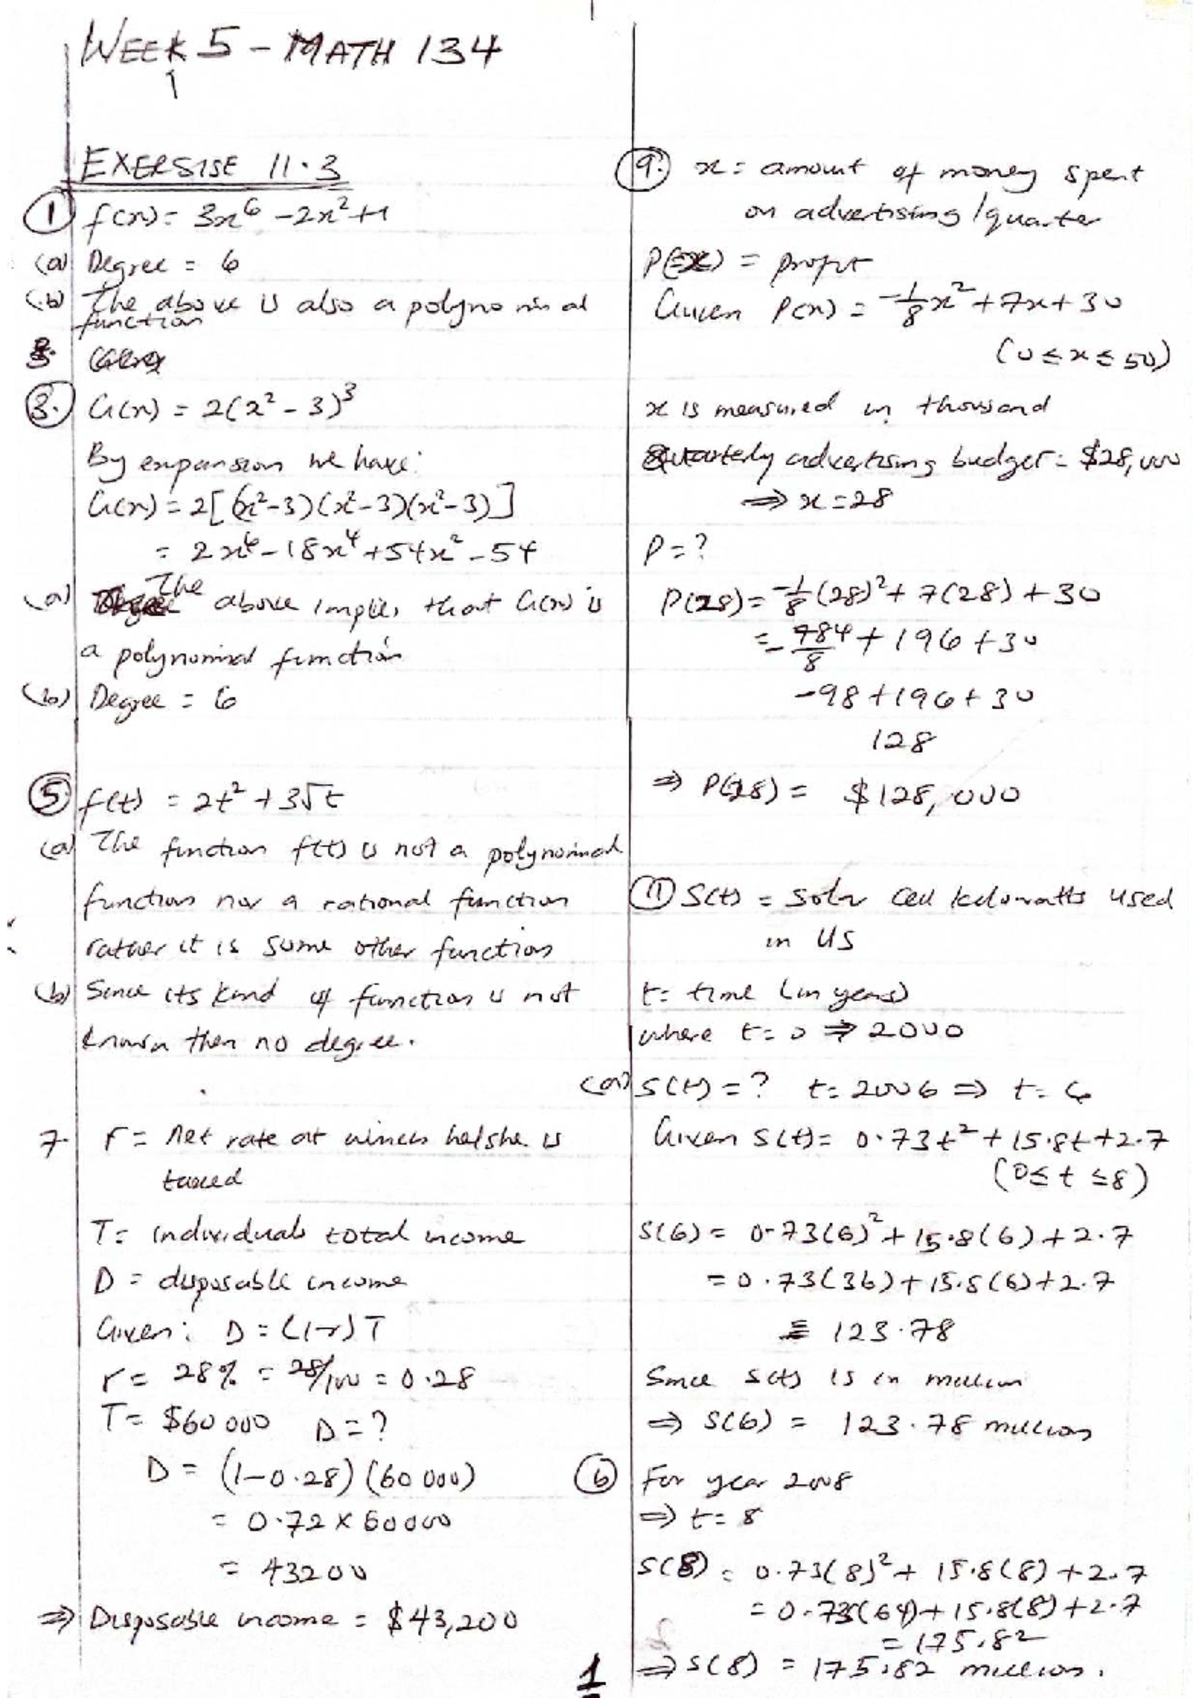 WEEK 5 - MATH 134
EXERSISE 11.3
① f(x) = 3x⁶ - 2x² + 1
(a) Degree = 6
(b) The above is also a polynominal
function
③. G(x) = 2(x² - 3)³
By expansion we have:
G(x) = 2[(x²-3)(x²-3)(x²-3)]
= 2x⁶ - 18x⁴ + 54x² - 54
(a) The above implies that G(x) is
a polynominal function
(b) Degree = 6
⑤ f(t) = 2t² + 3√t
(a) The function f(t) is not a polynominal
function nor a rational function
rather it is some other function
(b) Since its kind of function is not
known then no degree.
7. r = Net rate at which he/she is
taxed
T = individuals total income
D = disposable income
Given: D = (1-r)T
r = 28% = 28/100 = 0.28
T = $60 000 D = ?
D = (1-0.28)(60 000)
= 0.72 × 60000
= 43200
⇒ Disposable income = $43,200
⑨. x = amount of money spent
on advertising/quarter
P(x) = profit
Given P(x) = -1/8x² + 7x + 30
(0 ≤ x ≤ 50)
x is measured in thousand
Quarterly advertising budget = $28,000
⇒ x = 28
P = ?
P(28) = -1/8(28)² + 7(28) + 30
= -784/8 + 196 + 30
-98 + 196 + 30
128
⇒ P(28) = $128,000
⑪ S(t) = solar cell kilowatts used
in US
t = time (in years)
where t = 0 ⇒ 2000
(a) S(t) = ? t = 2006 ⇒ t = 6
Given S(t) = 0.73t² + 15.8t + 2.7
(0 ≤ t ≤ 8)
S(6) = 0.73(6)² + 15.8(6) + 2.7
= 0.73(36) + 15.8(6) + 2.7
= 123.78
Since S(t) is in million
⇒ S(6) = 123.78 million
ⓑ For year 2008
⇒ t = 8
S(8) = 0.73(8)² + 15.8(8) + 2.7
= 0.73(64) + 15.8(8) + 2.7
= 175.82
⇒ S(8) = 175.82 million.
1